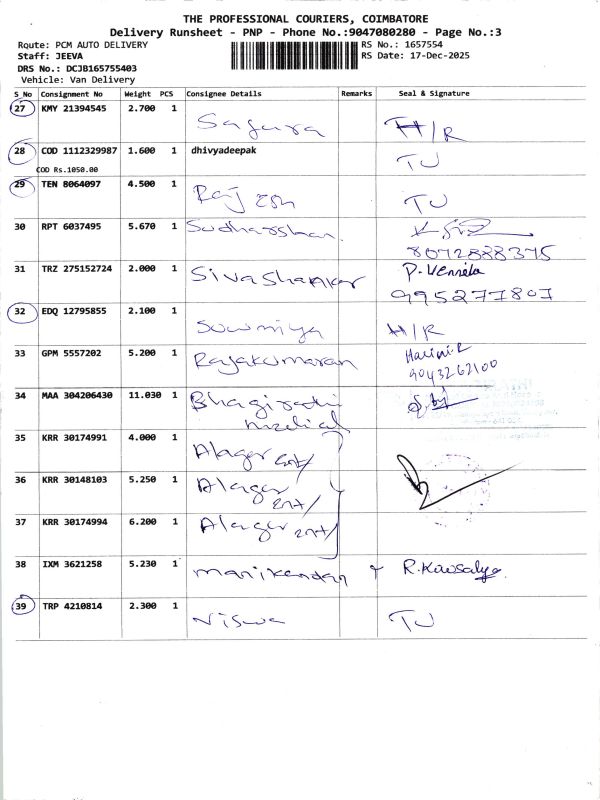 THE PROFESSIONAL COURIERS, COIMBATORE
Delivery Runsheet - PNP - Phone No.:9047080280 - Page No.:3
Route: PCM AUTO DELIVERY RS No.: 1657554
Staff: JEEVA RS Date: 17-Dec-2025
DRS No.: DCJB165755403
Vehicle: Van Delivery
S_No Consignment No Weight PCS Consignee Details Remarks Seal & Signature
27 KMY 21394545 2.700 1 Sagara H/R
28 COD 1112329987 1.600 1 dhivyadeepak TU
COD Rs.1050.00
29 TEN 8064097 4.500 1 Rajesh TU
30 RPT 6037495 5.670 1 Sudharshan.
8072888375
31 TRZ 275152724 2.000 1 Sivashankar P. Vennila
995277807
32 EDQ 12795855 2.100 1 Sowmiya H/R
33 GPM 5557202 5.200 1 Rajakumaran Harini.R
9043262100
34 MAA 304206430 11.030 1 Bhagirathi
medical
35 KRR 30174991 4.000 1 Alager ent/
36 KRR 30148103 5.250 1 Alager
ent/
37 KRR 30174994 6.200 1 Alager ent/
38 IXM 3621258 5.230 1 manikandan R. Kowsalya
39 TRP 4210814 2.300 1 Viswa TU